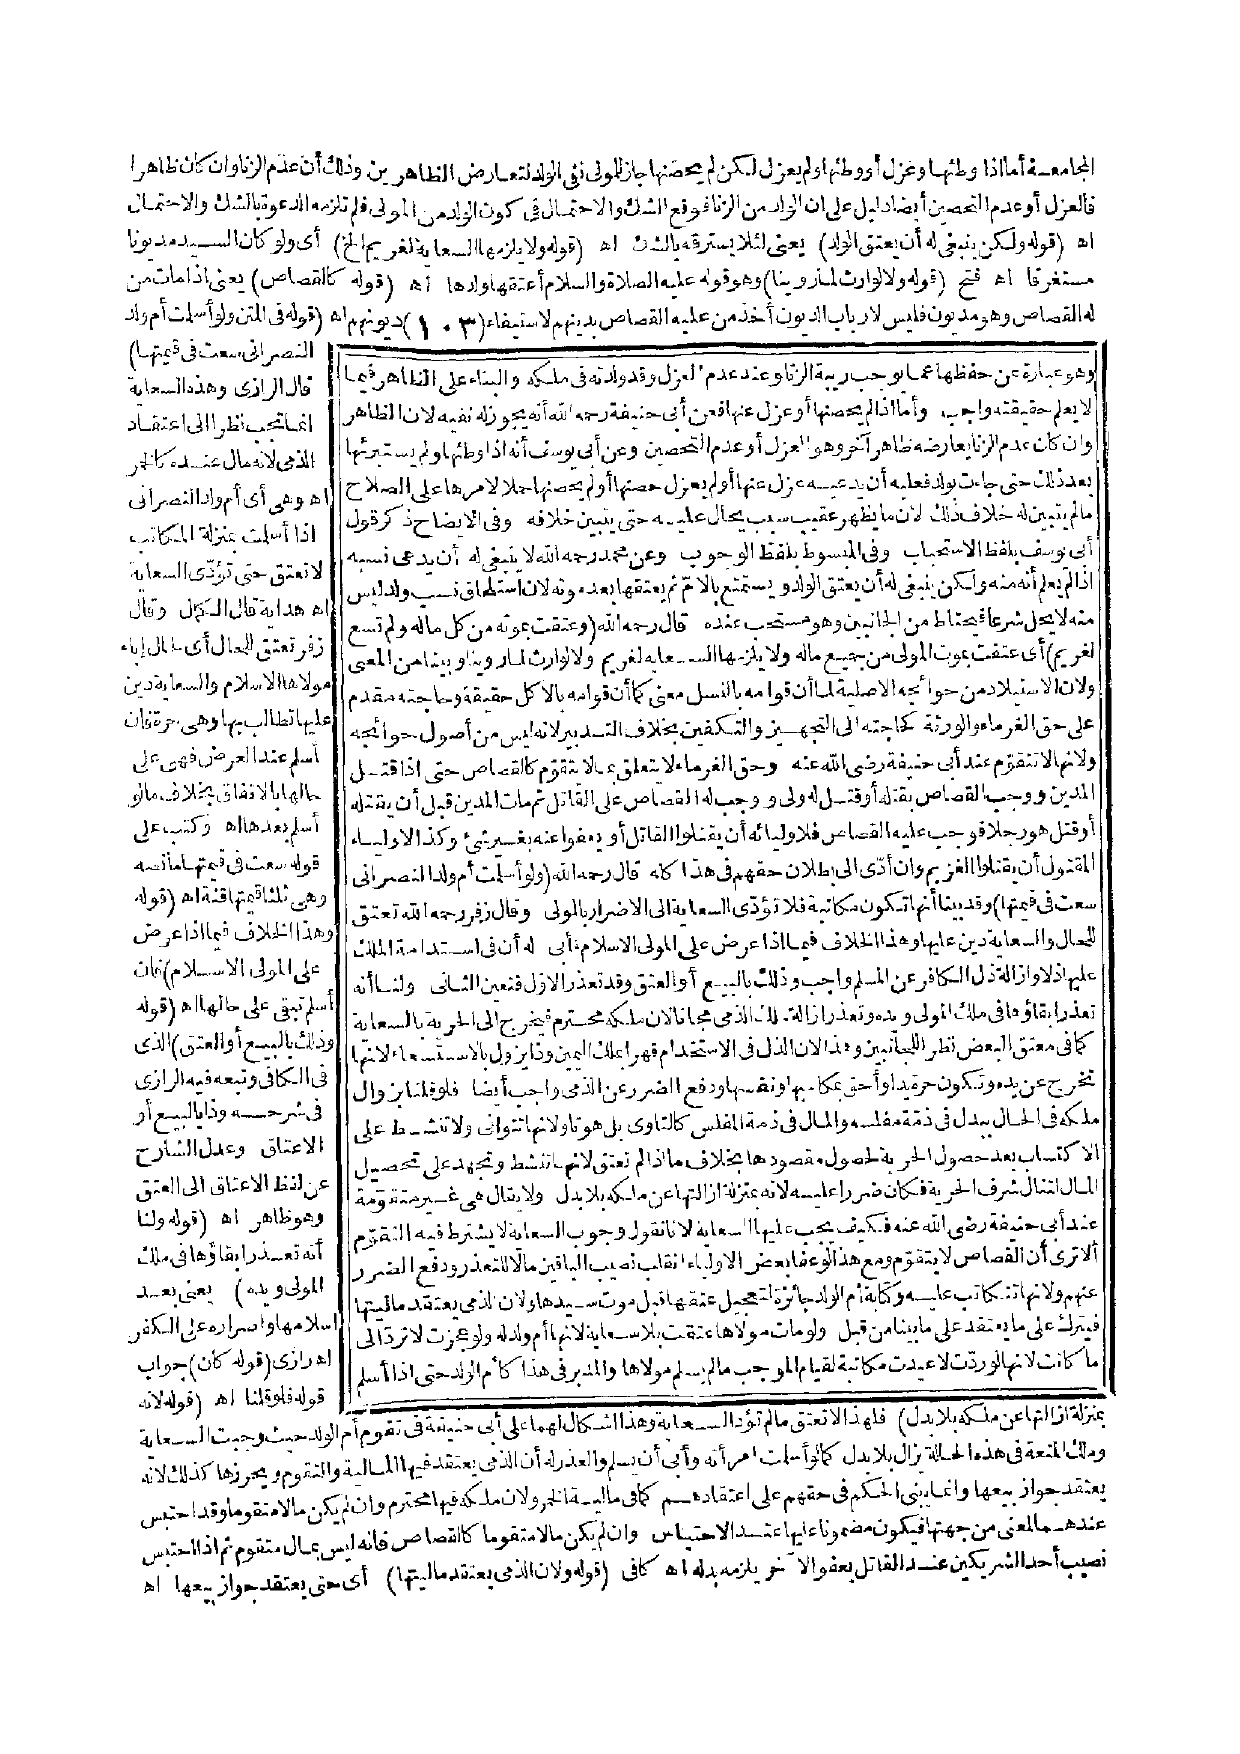 المجامعة أما اذا وطئها وعزل أو وطئها ولم يعزل لكن لم يحصنها جاز للمولى نفى الولد لتعارض الظاهرين وذلك أن عدم الزنا وان كان ظاهرا
فالعزل أو عدم التحصين أيضا دليل على ان الولد من الزنا فوقع الشك والاحتمال فى كون الولد من المولى فلم تلزمه الدعوة بالشك والاحتمال
اه (قوله ولكن ينبغى له أن يعتق الولد) يعنى لئلا يسترقه بالشك اه (قوله ولا يلزمها السعاية لغريم الخ) أى ولو كان السيد مديونا
مستغرقا اه فتح (قوله ولا لوارث لما روينا) وهو قوله عليه الصلاة والسلام أعتقها ولدها اه (قوله كالقصاص) يعنى اذا مات من
له القصاص وهو مديون فليس لارباب الديون أخذ من عليه القصاص بدينهم لاستيفاء (١٠٣) ديونهم اه (قوله فى المتن ولو أسلمت أم ولد
النصرانى سعت فى قيمتها)
قال الرازى وهذه السعاية
انما تجب نظرا الى اعتقاد
الذمى لانه مال عنده كالخمر
اه وهى أى أم ولد النصرانى
اذا أسلمت بمنزلة المكاتب
لا تعتق حتى تؤدى السعاية
اه هداية قال الكمال وقال
زفر تعتق للحال أى حال إباء
مولاها الاسلام والسعاية دين
عليها تطالب بها وهى حرة فان
أسلم عند العرض فهى على
حالها بالاتفاق بخلاف مالو
أسلم بعدها اه وكتب على
قوله سعت فى قيمتها مانصه
وهى ثلثا قيمتها قنة اه (قوله
وهذا الخلاف فيما اذا عرض
على المولى الاسلام) فان
أسلم تبقى على حالها اه (قوله
وذلك بالبيع أو العتق) الذى
فى الكافى وتبعه فيه الرازى
فى شرحه وذا بالبيع أو
الاعتاق وعدل الشارح
عن لفظ الاعتاق الى العتق
وهو ظاهر اه (قوله ولنا
أنه تعذر ابقاؤها فى ملك
المولى ويده) يعنى بعد
اسلامها واصراره على الكفر
اه رازى (قوله كان) جواب
قوله فلو قلنا اه (قوله لانه
وهو عبارة عن حفظها عما يوجب ريبة الزنا وعند عدم العزل وقد ولدته فى ملكه والبناء على الظاهر فيما
لا يعلم حقيقته واجب وأما اذا لم يحصنها أو عزل عنها فعن أبى حنيفة رحمه الله أنه يجوز له نفيه لان الظاهر
وان كان عدم الزنا يعارضه ظاهر آخر وهو العزل أو عدم التحصين وعن أبى يوسف أنه اذا وطئها ولم يستبرئها
بعد ذلك حتى جاءت بولد فعليه أن يدعيه عزل عنها أو لم يعزل حصنها أو لم يحصنها حملا لامرها على الصلاح
مالم يتبين له خلاف ذلك لان ما يظهر عقيب سبب يحال عليه حتى يتبين خلافه وفى الايضاح ذكر قول
أبى يوسف بلفظ الاستحباب وفى المبسوط بلفظ الوجوب وعن محمد رحمه الله لا ينبغى له أن يدعى نسبه
اذا لم يعلم أنه منه ولكن ينبغى له أن يعتق الولد ويستمتع بالام ثم يعتقها بعد موته لان استلحاق نسب ولد ليس
منه لا يحل شرعا فيحتاط من الجانبين وهو مستحب عنده قال رحمه الله (وعتقت بموته من كل ماله ولم تسع
لغريم) أى عتقت بموت المولى من جميع ماله ولا يلزمها السعاية لغريم ولا لوارث لما روينا وبينا من المعنى
ولان الاستيلاد من حوائجه الاصلية لما أن قوامه بالنسل معنى كما أن قوامه بالاكل حقيقة وحاجته مقدم
على حق الغرماء والورثة كحاجته الى التجهيز والتكفين بخلاف التدبير لانه ليس من أصول حوائجه
ولانها لا تتقوم عند أبى حنيفة رضى الله عنه وحق الغرماء لا يتعلق بما لا يتقوم كالقصاص حتى اذا قتل
المدين ووجب القصاص بقتله أو قتل له ولى ووجب له القصاص على القاتل ثم مات المدين قبل أن يقتله
أو قتل هو رجلا فوجب عليه القصاص فلاوليائه أن يقتلوا القاتل أو يعفوا عنه بغير شئ وكذا الاولياء
المقتول أن يقتلوا الغريم وان أدى الى بطلان حقهم فى هذا كله قال رحمه الله (ولو أسلمت أم ولد النصرانى
سعت فى قيمتها) وقد بينا أنها تكون مكاتبة فلا تؤدى السعاية الى الاضرار بالمولى وقال زفر رحمه الله تعتق
للحال والسعاية دين عليها وهذا الخلاف فيما اذا عرض على المولى الاسلام فأبى له أن فى استدامة الملك
عليها اذلالا وازالة الذل الكافر عن المسلم واجب وذلك بالبيع أو العتق وقد تعذر الاول فتعين الثانى ولنا أنه
تعذر ابقاؤها فى ملك المولى ويده وتعذر ازالة ملك الذمى مجانا لان ملكه محترم فيخرج الى الحرية بالسعاية
كما فى معتق البعض نظرا للجانبين وهذا لان الذل فى الاستخدام قهرا بملك اليمين وذا يزول بالاستسعاء لانها
تخرج عن يده وتكون حرة يدا وأحق بمكاسبها ونفسها ودفع الضرر عن الذمى واجب أيضا فلو قلنا بزوال
ملكه فى الحال ببدل فى ذمة مفلسه والمال فى ذمة المفلس كالتاوى بل هو تاو لانها تتوانى ولا تنشط على
الاكتساب بعد حصول الحرية لحصول مقصودها بخلاف ما اذا لم تعتق لانها تنشط وتجهد على تحصيل
المال لتنال شرف الحرية فكان ضررا عليه لانه بمنزلة ازالتها عن ملكه بلا بدل ولا يقال هى غير متقومة
عند أبى حنيفة رضى الله عنه فكيف يجب عليها السعاية لانا نقول وجوب السعاية لا يشترط فيه التقوم
ألا ترى أن القصاص لا يتقوم ومع هذا لو عفا بعض الاولياء انقلب نصيب الباقين مالا للتعذر ودفع الضرر
عنهم ولانها تتكاتب عليه وكتابة أم الولد جائزة لتعجيل عتقها قبل موت سيدها ولان الذمى يعتقد ماليتها
فيترك على ما يعتقد على ما بينا من قبل ولو مات مولاها عتقت بلا سعاية لانها أم ولد له ولو عجزت لا ترد الى
ما كانت لانها لو ردت لاعيدت مكاتبة لقيام الموجب مالم يسلم مولاها والمدبر فى هذا كأم الولد حتى اذا أسلم
بمنزلة ازالتها عن ملكه بلا بدل) فلهذا لا تعتق مالم تؤد السعاية وهذا اشكال لهما على أبى حنيفة فى تقوم أم الولد حيث وجبت السعاية
وملك المتعة فى هذه الحالة يزال بلا بدل كما لو أسلمت امرأته وأبى أن يسلم والعذر له أن الذمى يعتقد فيها المالية والتقوم ويحرزها كذلك لانه
يعتقد جواز بيعها وانما يبنى الحكم فى حقهم على اعتقادهم كما فى مالية الخمر ولان ملكه فيها محترم وان لم يكن مالا متقوما وقد احتبس
عندها لمعنى من جهتها فيكون مضمونا عليها عند الاحتباس وان لم يكن مالا متقوما كالقصاص فانه ليس بمال متقوم ثم اذا احتبس
نصيب أحد الشريكين عند القاتل بعفو الآخر يلزمه بدله اه كافى (قوله ولان الذمى يعتقد ماليتها) أى حتى يعتقد جواز بيعها اه